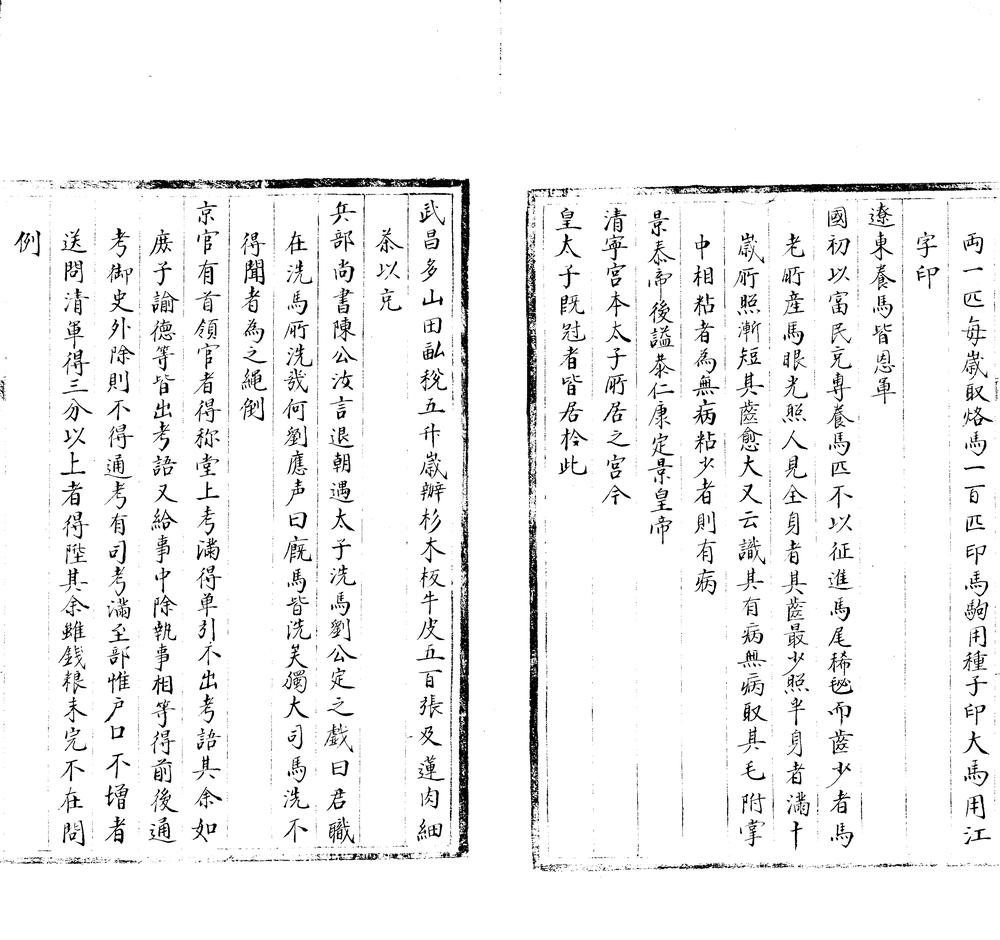 両一匹每嵗取烙馬一百匹印馬駒用種子印大馬用江
字印
遼東養馬皆恩軍
國初以富民充専養馬匹不以征進馬尾稀毯而齒少者馬
老所産馬眼光照人見全身者其齒最少照半身者滿十
嵗所照漸短其齒愈大又云識其有病無病取其毛附掌
中相粘者為無病粘少者則有病
景泰帝後謚恭仁康定景皇帝
清寧宮本太子所居之宮今
皇太子既冠者皆居於此
武昌多山田畝稅五升嵗辦杉木板牛皮五百張及蓮肉細
茶以充
兵部尚書陳公汝言退朝遇太子洗馬劉公定之戯曰君職
在洗馬所洗㡬何劉應声曰廐馬皆洗矣獨大司馬洗不
得聞者為之絕倒
京官有首領官者得称堂上考滿得单引不出考語其余如
庶子諭德等皆出考語又給事中除執事相等得前後通
考御史外除則不得通考有司考滿至部惟戶口不增者
送問清軍得三分以上者得陞其余雖錢粮未完不在問
例